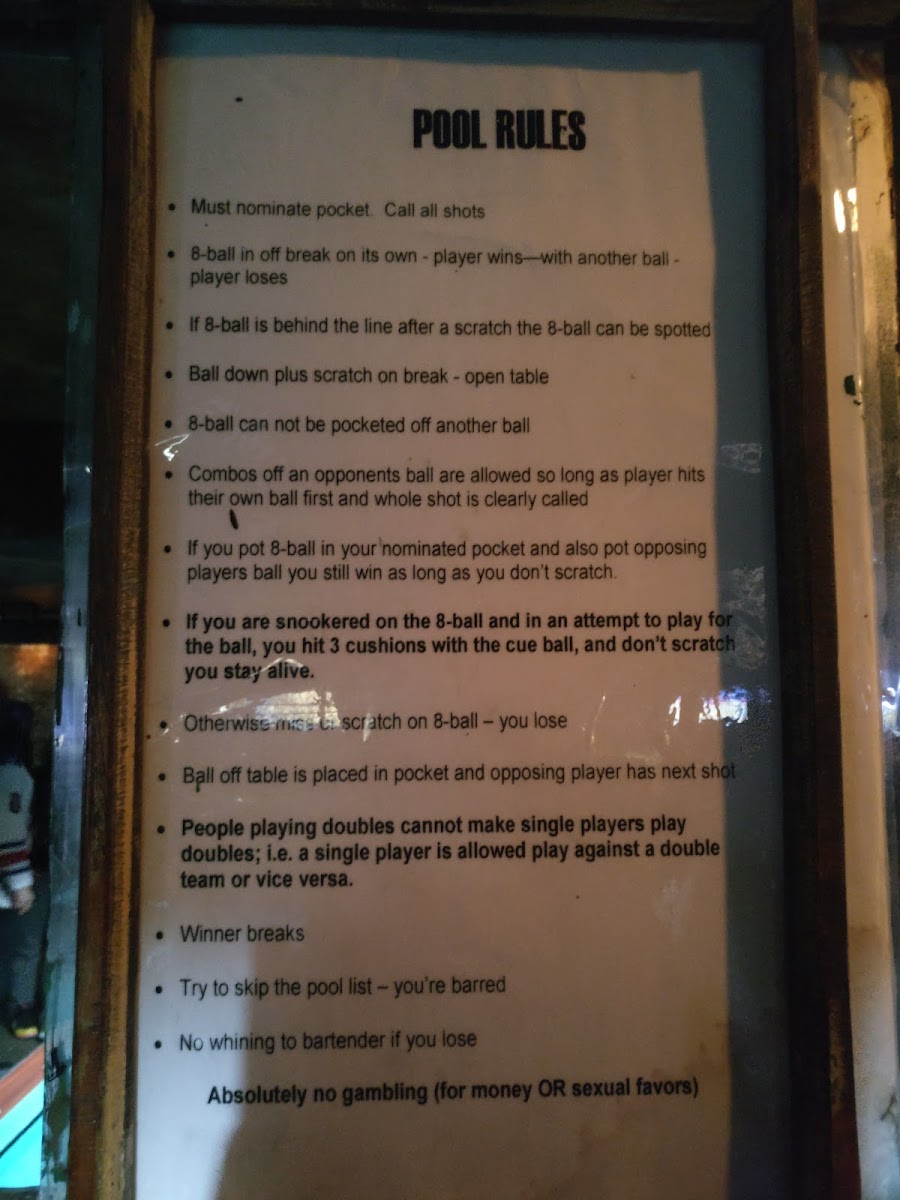 POOL RULES
• Must nominate pocket. Call all shots
• 8-ball in off break on its own - player wins—with another ball -
player loses
• If 8-ball is behind the line after a scratch the 8-ball can be spotted
• Ball down plus scratch on break - open table
• 8-ball can not be pocketed off another ball
• Combos off an opponents ball are allowed so long as player hits
their own ball first and whole shot is clearly called
• If you pot 8-ball in your nominated pocket and also pot opposing
players ball you still win as long as you don't scratch.
• If you are snookered on the 8-ball and in an attempt to play for
the ball, you hit 3 cushions with the cue ball, and don't scratch
you stay alive.
• Otherwise miss or scratch on 8-ball – you lose
• Ball off table is placed in pocket and opposing player has next shot
• People playing doubles cannot make single players play
doubles; i.e. a single player is allowed play against a double
team or vice versa.
• Winner breaks
• Try to skip the pool list – you're barred
• No whining to bartender if you lose
Absolutely no gambling (for money OR sexual favors)